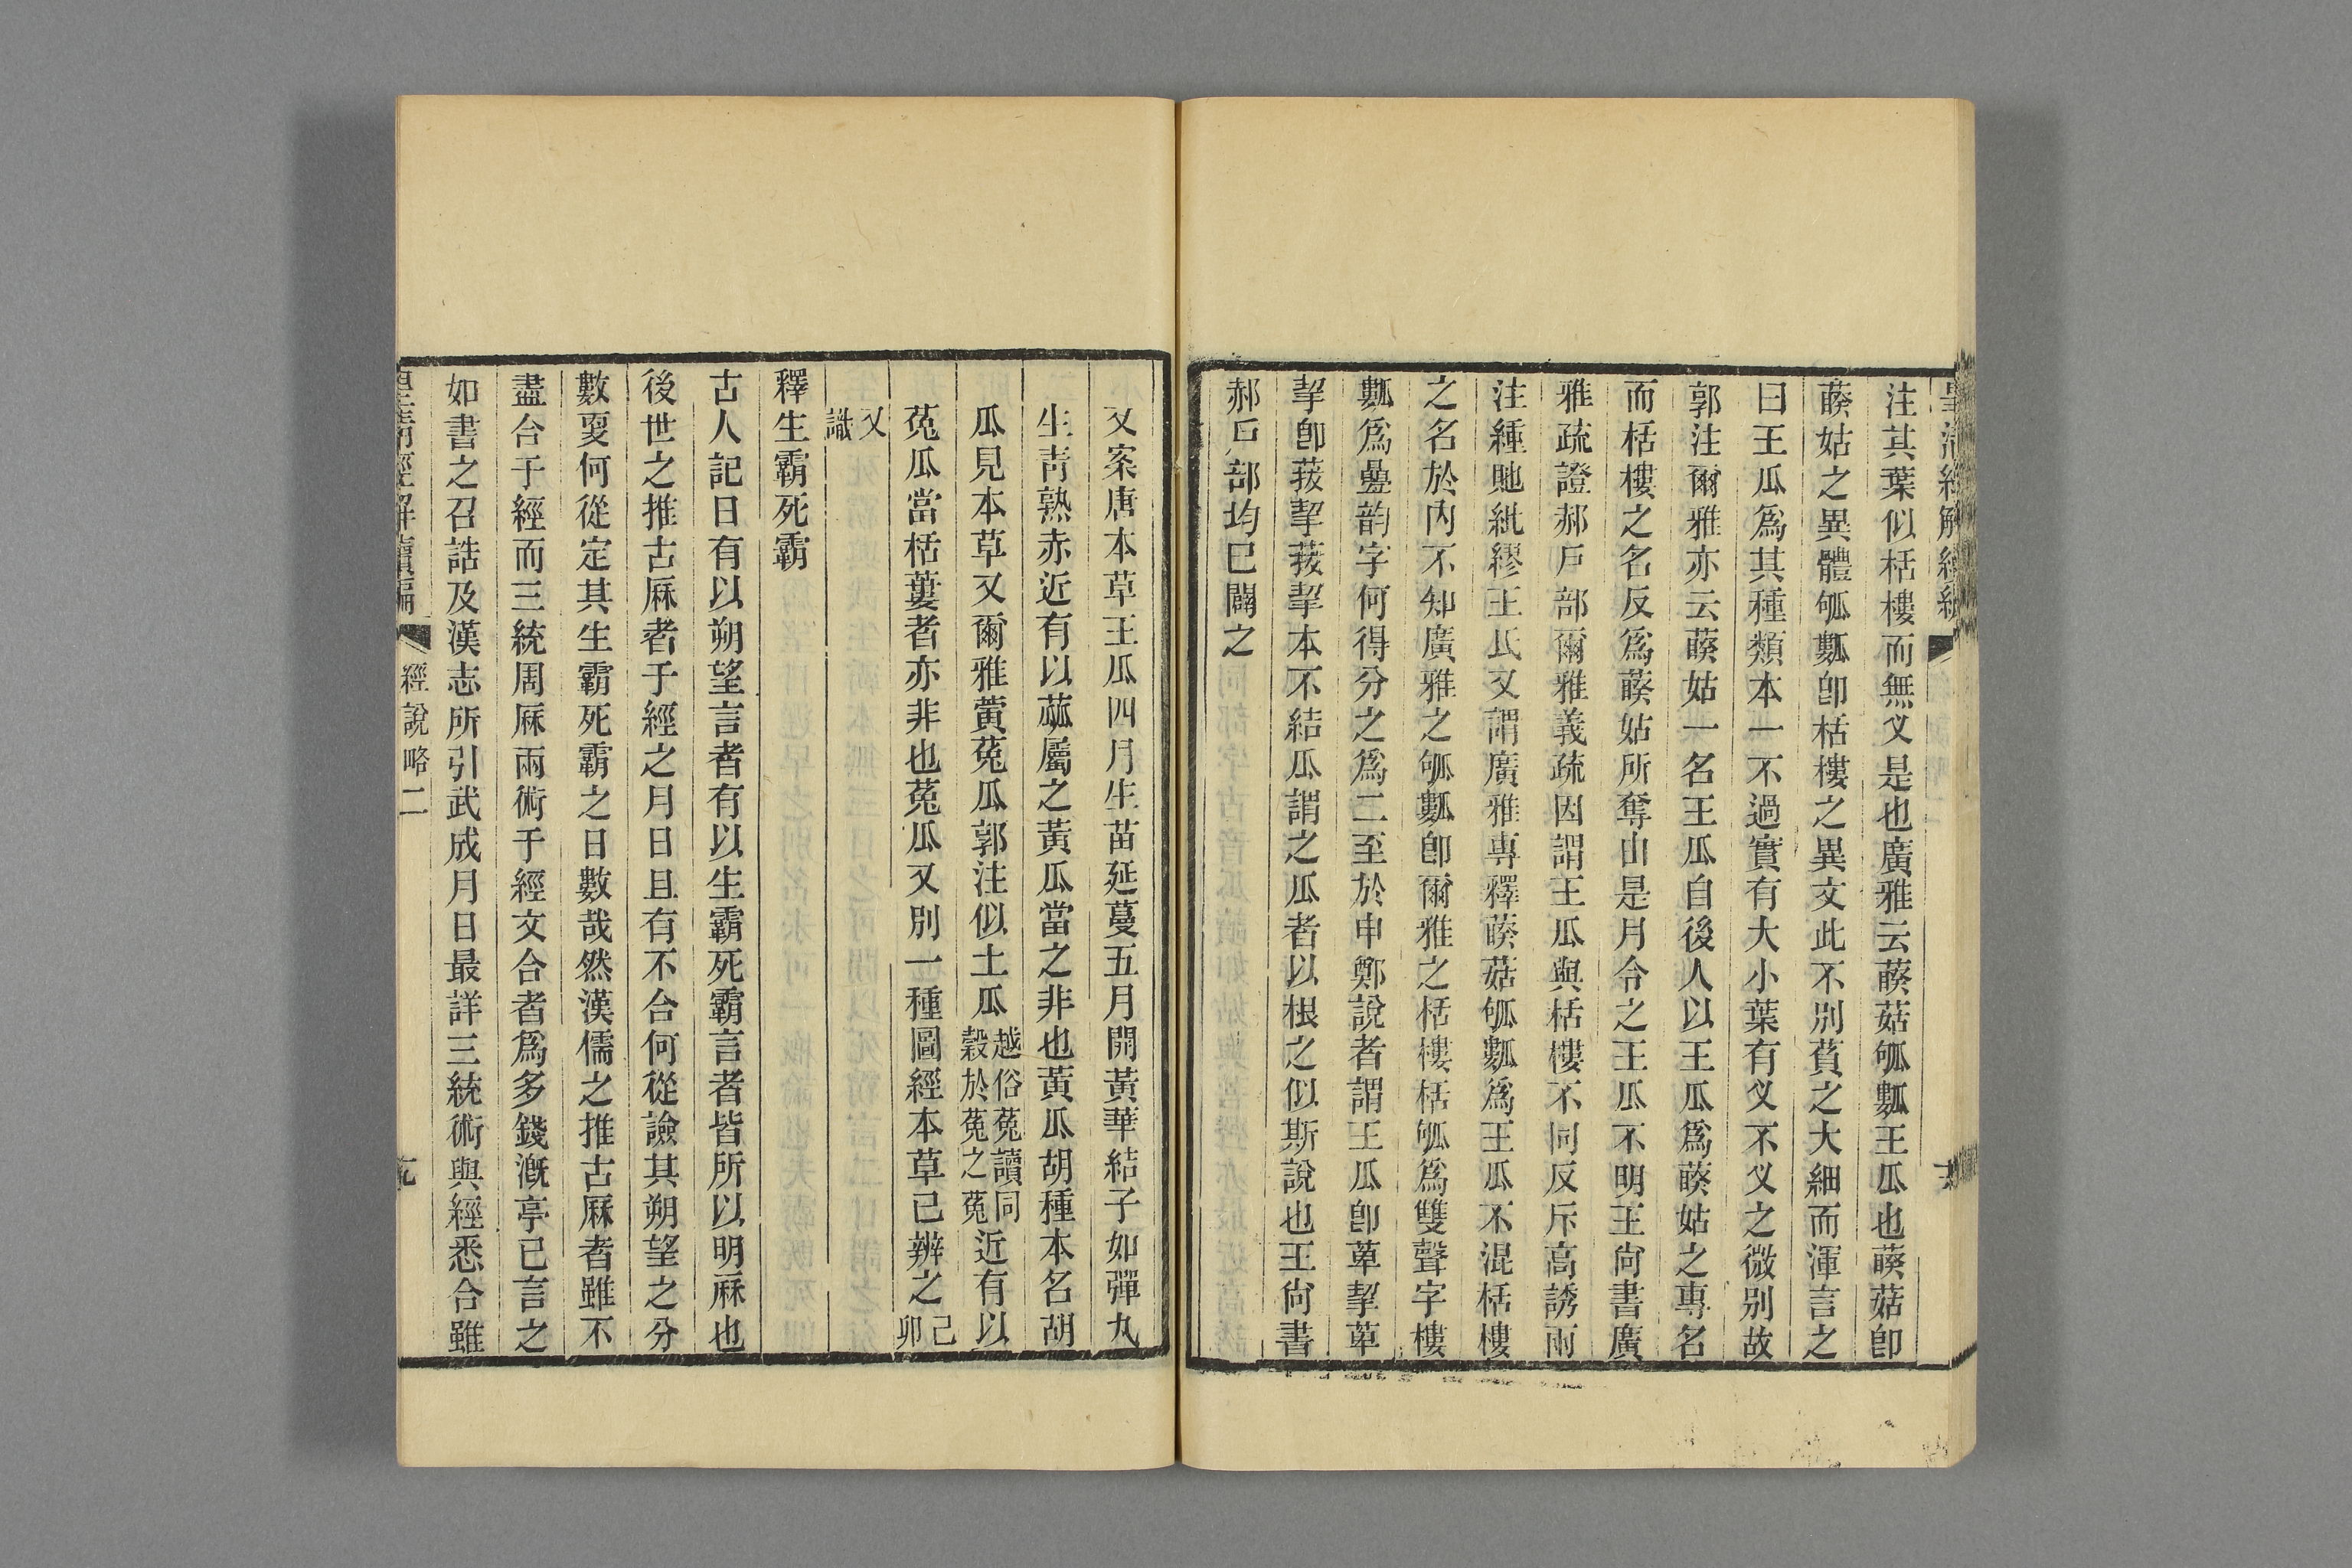 注其葉似栝樓而無叉是也廣雅云䕷菇㼋㼖王瓜也䕷菇卽
䕷姑之異體㼋㼖卽栝樓之異文此不別蕡之大細而渾言之
曰王瓜爲其種類本一不過實有大小葉有叉不叉之微別故
郭注爾雅亦云䕷姑一名王瓜自後人以王瓜爲䕷姑之專名
而栝樓之名反爲䕷姑所奪由是月令之王瓜不明王尙書廣
雅疏證郝戶部爾雅義疏因謂王瓜與栝樓不同反斥高誘兩
注紕繆王氏又謂廣雅專釋䕷菇㼋㼖爲王瓜不混栝樓
之名於內不知廣雅之㼋㼖卽爾雅之栝樓栝㼋爲雙聲字樓
㼖爲㬪韵字何得分之爲二至於申鄭說者謂王瓜卽萆挈萆
挈卽菝挈菝挈本不結瓜謂之瓜者以根之似斯說也王尙書
郝戶部均已闢之
又案唐本草王瓜四月生苗延蔓五月開黃華結子如彈丸
生靑熟赤近有以蓏屬之黃瓜當之非也黃瓜胡種本名胡
瓜見本草又爾雅黃菟瓜郭注似土瓜越俗菟讀同穀於菟之菟近有以
菟瓜當栝蔞者亦非也菟瓜又別一種圖經本草已辨之己卯
又識
釋生霸死霸
古人記日有以朔望言者有以生霸死霸言者皆所以明厤也
後世之推古厤者于經之月日且有不合何從譣其朔望之分
數㪅何從定其生霸死霸之日數哉然漢儒之推古厤者雖不
盡合于經而三統周厤兩術于經文合者爲多錢漑亭已言之
如書之召誥及漢志所引武成月日最詳三統術與經悉合雖
皇淸經解續編
經說略二